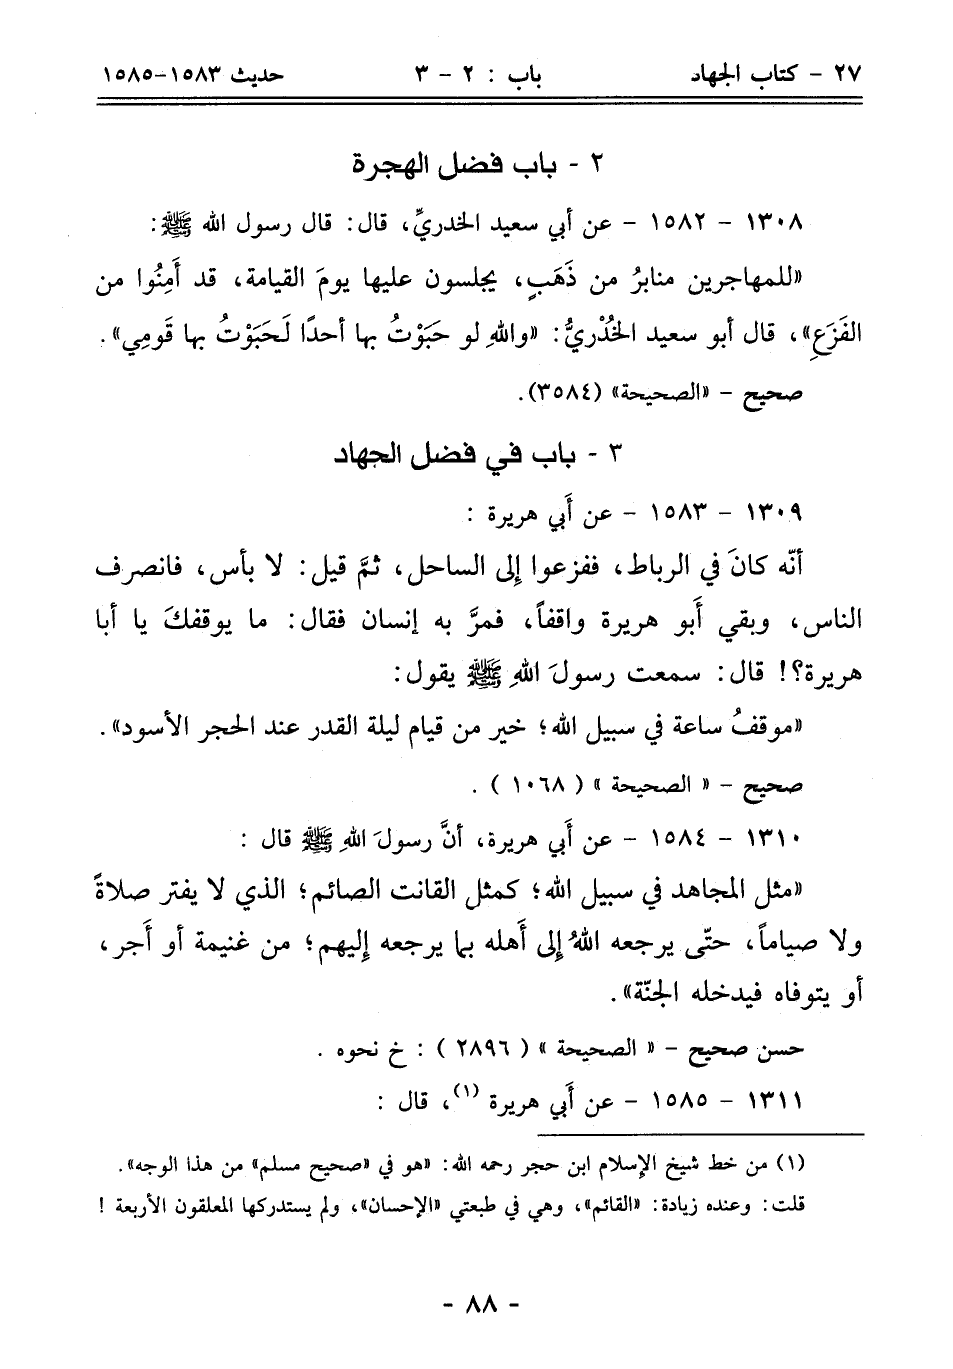 ٢٧ - كتاب الجهاد باب : ٢ - ٣ حديث ١٥٨٣-١٥٨٥
٢ - باب فضل الهجرة
١٣٠٨ - ١٥٨٢ - عن أبي سعيد الخدريِّ، قال: قال رسول الله ﷺ:
«للمهاجرين منابرُ من ذَهَبٍ، يجلسون عليها يومَ القيامة، قد أَمِنُوا من
الفَزَعِ»، قال أبو سعيد الخُدْريُّ: «واللهِ لو حَبَوْتُ بها أحدًا لَحَبَوْتُ بها قَومِي».
صحيح - «الصحيحة» (٣٥٨٤).
٣ - باب في فضل الجهاد
١٣٠٩ - ١٥٨٣ - عن أَبي هريرة :
أنّه كانَ في الرباط، ففزعوا إِلى الساحل، ثمَّ قيل: لا بأس، فانصرف
الناس، وبقي أَبو هريرة واقفاً، فمرَّ به إنسان فقال: ما يوقفكَ يا أبا
هريرة؟! قال: سمعت رسولَ اللهِ ﷺ يقول:
«موقفُ ساعة في سبيل الله؛ خير من قيام ليلة القدر عند الحجر الأسود».
صحيح - « الصحيحة » ( ١٠٦٨ ) .
١٣١٠ - ١٥٨٤ - عن أَبي هريرة، أنَّ رسولَ اللهِ ﷺ قال :
«مثل المجاهد في سبيل الله؛ كمثل القانت الصائم؛ الذي لا يفتر صلاةً
ولا صياماً، حتّى يرجعه اللهُ إِلى أَهله بما يرجعه إِليهم؛ من غنيمة أو أَجر،
أو يتوفاه فيدخله الجنّة».
حسن صحيح - « الصحيحة » ( ٢٨٩٦ ) : خ نحوه .
١٣١١ - ١٥٨٥ - عن أَبي هريرة (١)، قال :
(١) من خط شيخ الإسلام ابن حجر رحمه الله: «هو في «صحيح مسلم» من هذا الوجه».
قلت: وعنده زيادة: «القائم»، وهي في طبعتي «الإحسان»، ولم يستدركها المعلقون الأربعة !
- ٨٨ -